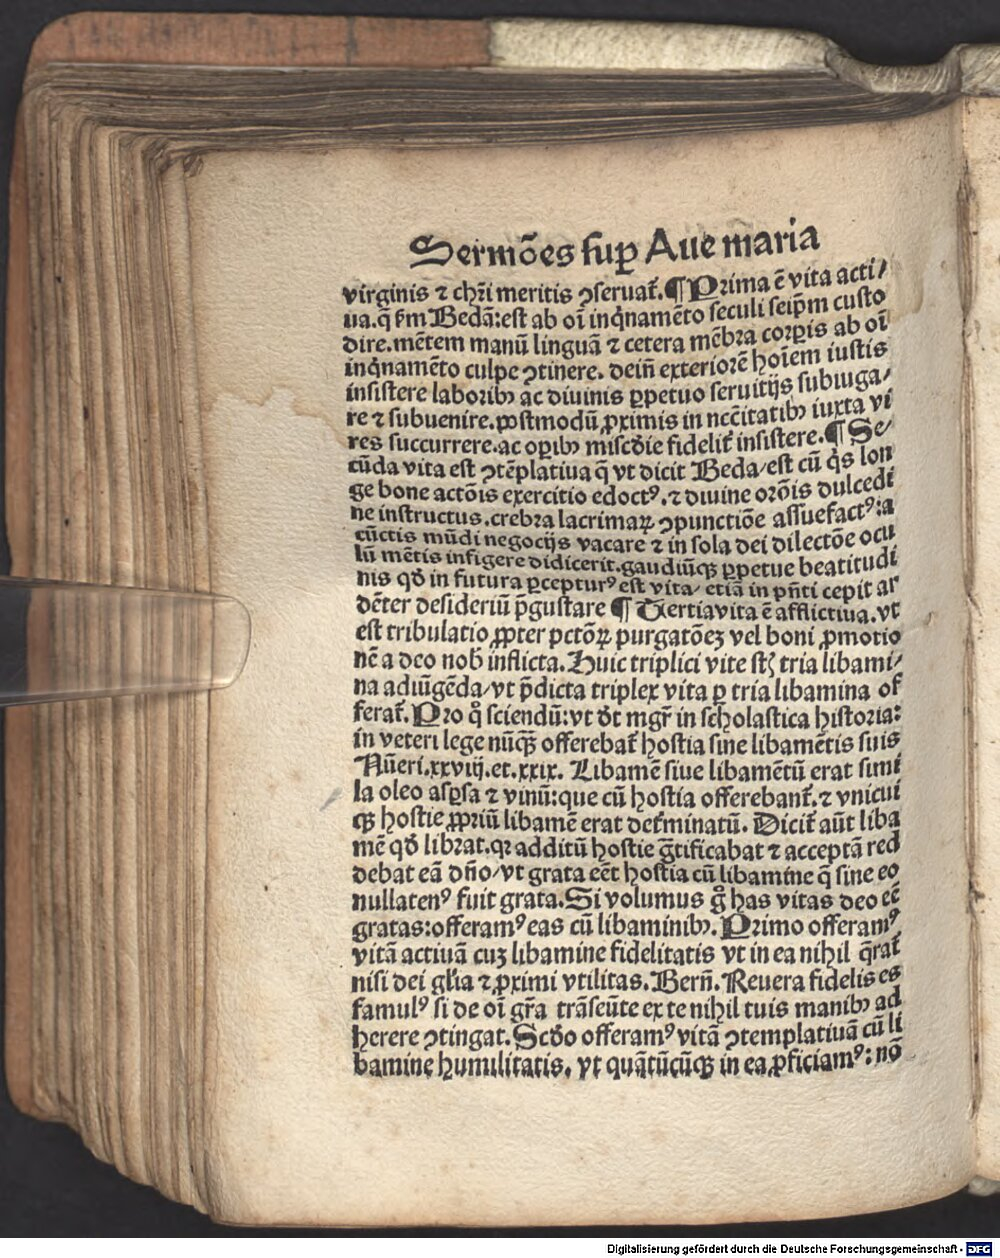 Sermões sup Aue maria
virginis ⁊ chr̃i meritis ꝯseruat̃. ¶ Prima ẽ vita acti/
ua. q̃ ẜm Bedã: est ab oĩ inq̇namẽto seculi seip̃m custo
dire. mẽtem manũ linguã ⁊ cetera mẽbra corꝑis ab oĩ
inq̇namẽto culpe ꝯtinere. deiñ exteriorẽ hoĩem iustis
insistere laboribꝫ ac diuinis ꝑpetuo seruitijs subiuga/
re ⁊ subuenire. postmodũ ꝓximis in nc̃citatibꝫ iuxta vi
res succurrere. ac oꝑibꝫ misc̃die fidelit̃ insistere. ¶ Se/
cũda vita est ꝯtẽplatiua q̃ vt dicit Beda/est cũ q̇s lon
ge bone actõis exercitio edoctꝰ. ⁊ diuine orõis dulcedi
ne instructus. crebra lacrimaꝝ ꝯpunctiõe assuefactꝰ: a
cũctis mũdi negocijs vacare ⁊ in sola dei dilectõe ocu
lũ mẽtis infigere didicerit. gaudiũqꝫ ꝑpetue beatitudi
nis qđ in futura ꝑcepturꝰ est vita/ etiã in p̃nti cepit ar
dẽter desideriũ p̃gustare ¶ Tertia vita ẽ afflictiua. vt
est tribulatio ꝓpter pctõꝝ purgatõeꝫ vel boni ꝓmotio
nẽ a deo nob̃ inflicta. Huic triplici vite st̃ tria libami/
na adiũgẽda/vt p̃dicta triplex vita ꝑ tria libamina of
ferat̃. Pro q̊ sciendũ: vt d̃t mgr̃ in scholastica historia:
in veteri lege nũqꝫ offerebat̃ hostia sine libamẽtis suis
Nũeri. xxviij. et. xxix. Libamẽ siue libamẽtũ erat simi
la oleo asꝑsa ⁊ vinũ: que cũ hostia offerebant̃. ⁊ vnicui
qꝫ hostie ꝓpriũ libamẽ erat det̃minatũ. Dicit̃ aũt liba
mẽ qđ librat. qꝛ additũ hostie g̃tificabat ⁊ acceptã red
debat eã dño/vt grata eẽt hostia cũ libamine q̃ sine eo
nullatenꝰ fuit grata. Si volumus g̊ has vitas deo eẽ
gratas: offeramꝰ eas cũ libaminibꝫ. Primo offeramꝰ
vitã actiuã cuꝫ libamine fidelitatis vt in ea nihil q̃rat̃
nisi dei gl̃ia ⁊ ꝓximi vtilitas. Berñ. Reuera fidelis es
famulꝰ si de oĩ gr̃a trãseũte ex te nihil tuis manibꝫ ad
herere ꝯtingat. Scđo offeramꝰ vitã ꝯtemplatiuã cũ li
bamine humilitatis. vt quãtũcũqꝫ in ea ꝓficiamꝰ: nõ
Digitalisierung gefördert durch die Deutsche Forschungsgemeinschaft - DFG